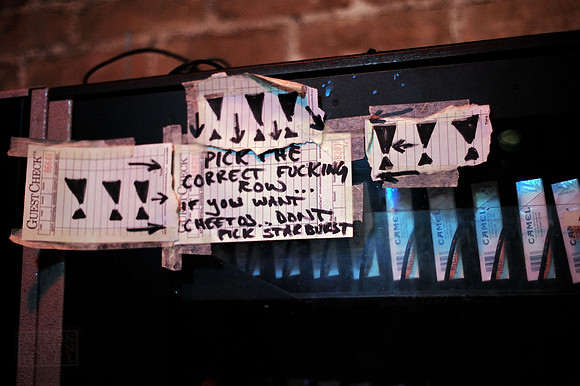 ! ! !
! ! !
GUESTCHECK™
! ! !
PICK THE
CORRECT FUCKING
ROW...
if YOU WANT
CHEETOS... DON'T
PICK STARBURST
CAMEL
CAMEL
CAMEL
CAMEL
CAMEL